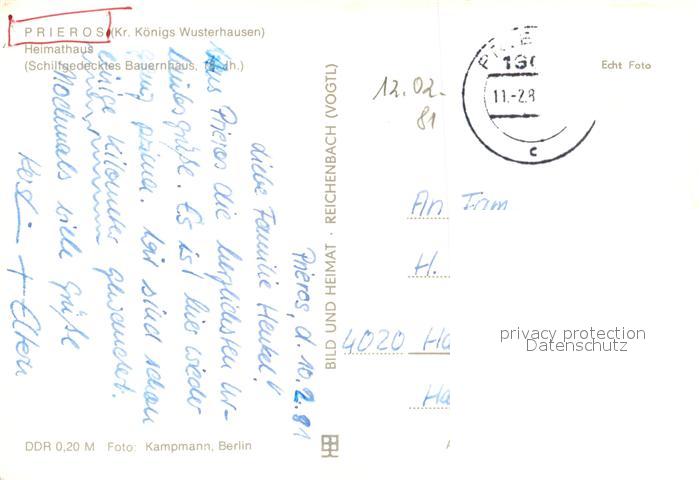 PRIEROS (Kr. Königs Wusterhausen)
Heimathaus
(Schilfgedecktes Bauernhaus, Jh.)
Prieros, d. 10.2.81
Liebe Familie Henkel!
Aus Prieros die herzlichsten Ur-
laubsgrüße. Es ist hier wieder
ganz prima. Wir sind schon
einige Kilometer gewandert.
Nochmals viele Grüße
+ Eltern
BILD UND HEIMAT · REICHENBACH (VOGTL)
12.02.
81
11.-2.8
c
Echt Foto
An Frau
H.
4020 Ha
Ha
privacy protection
Datenschutz
DDR 0,20 M Foto: Kampmann, Berlin